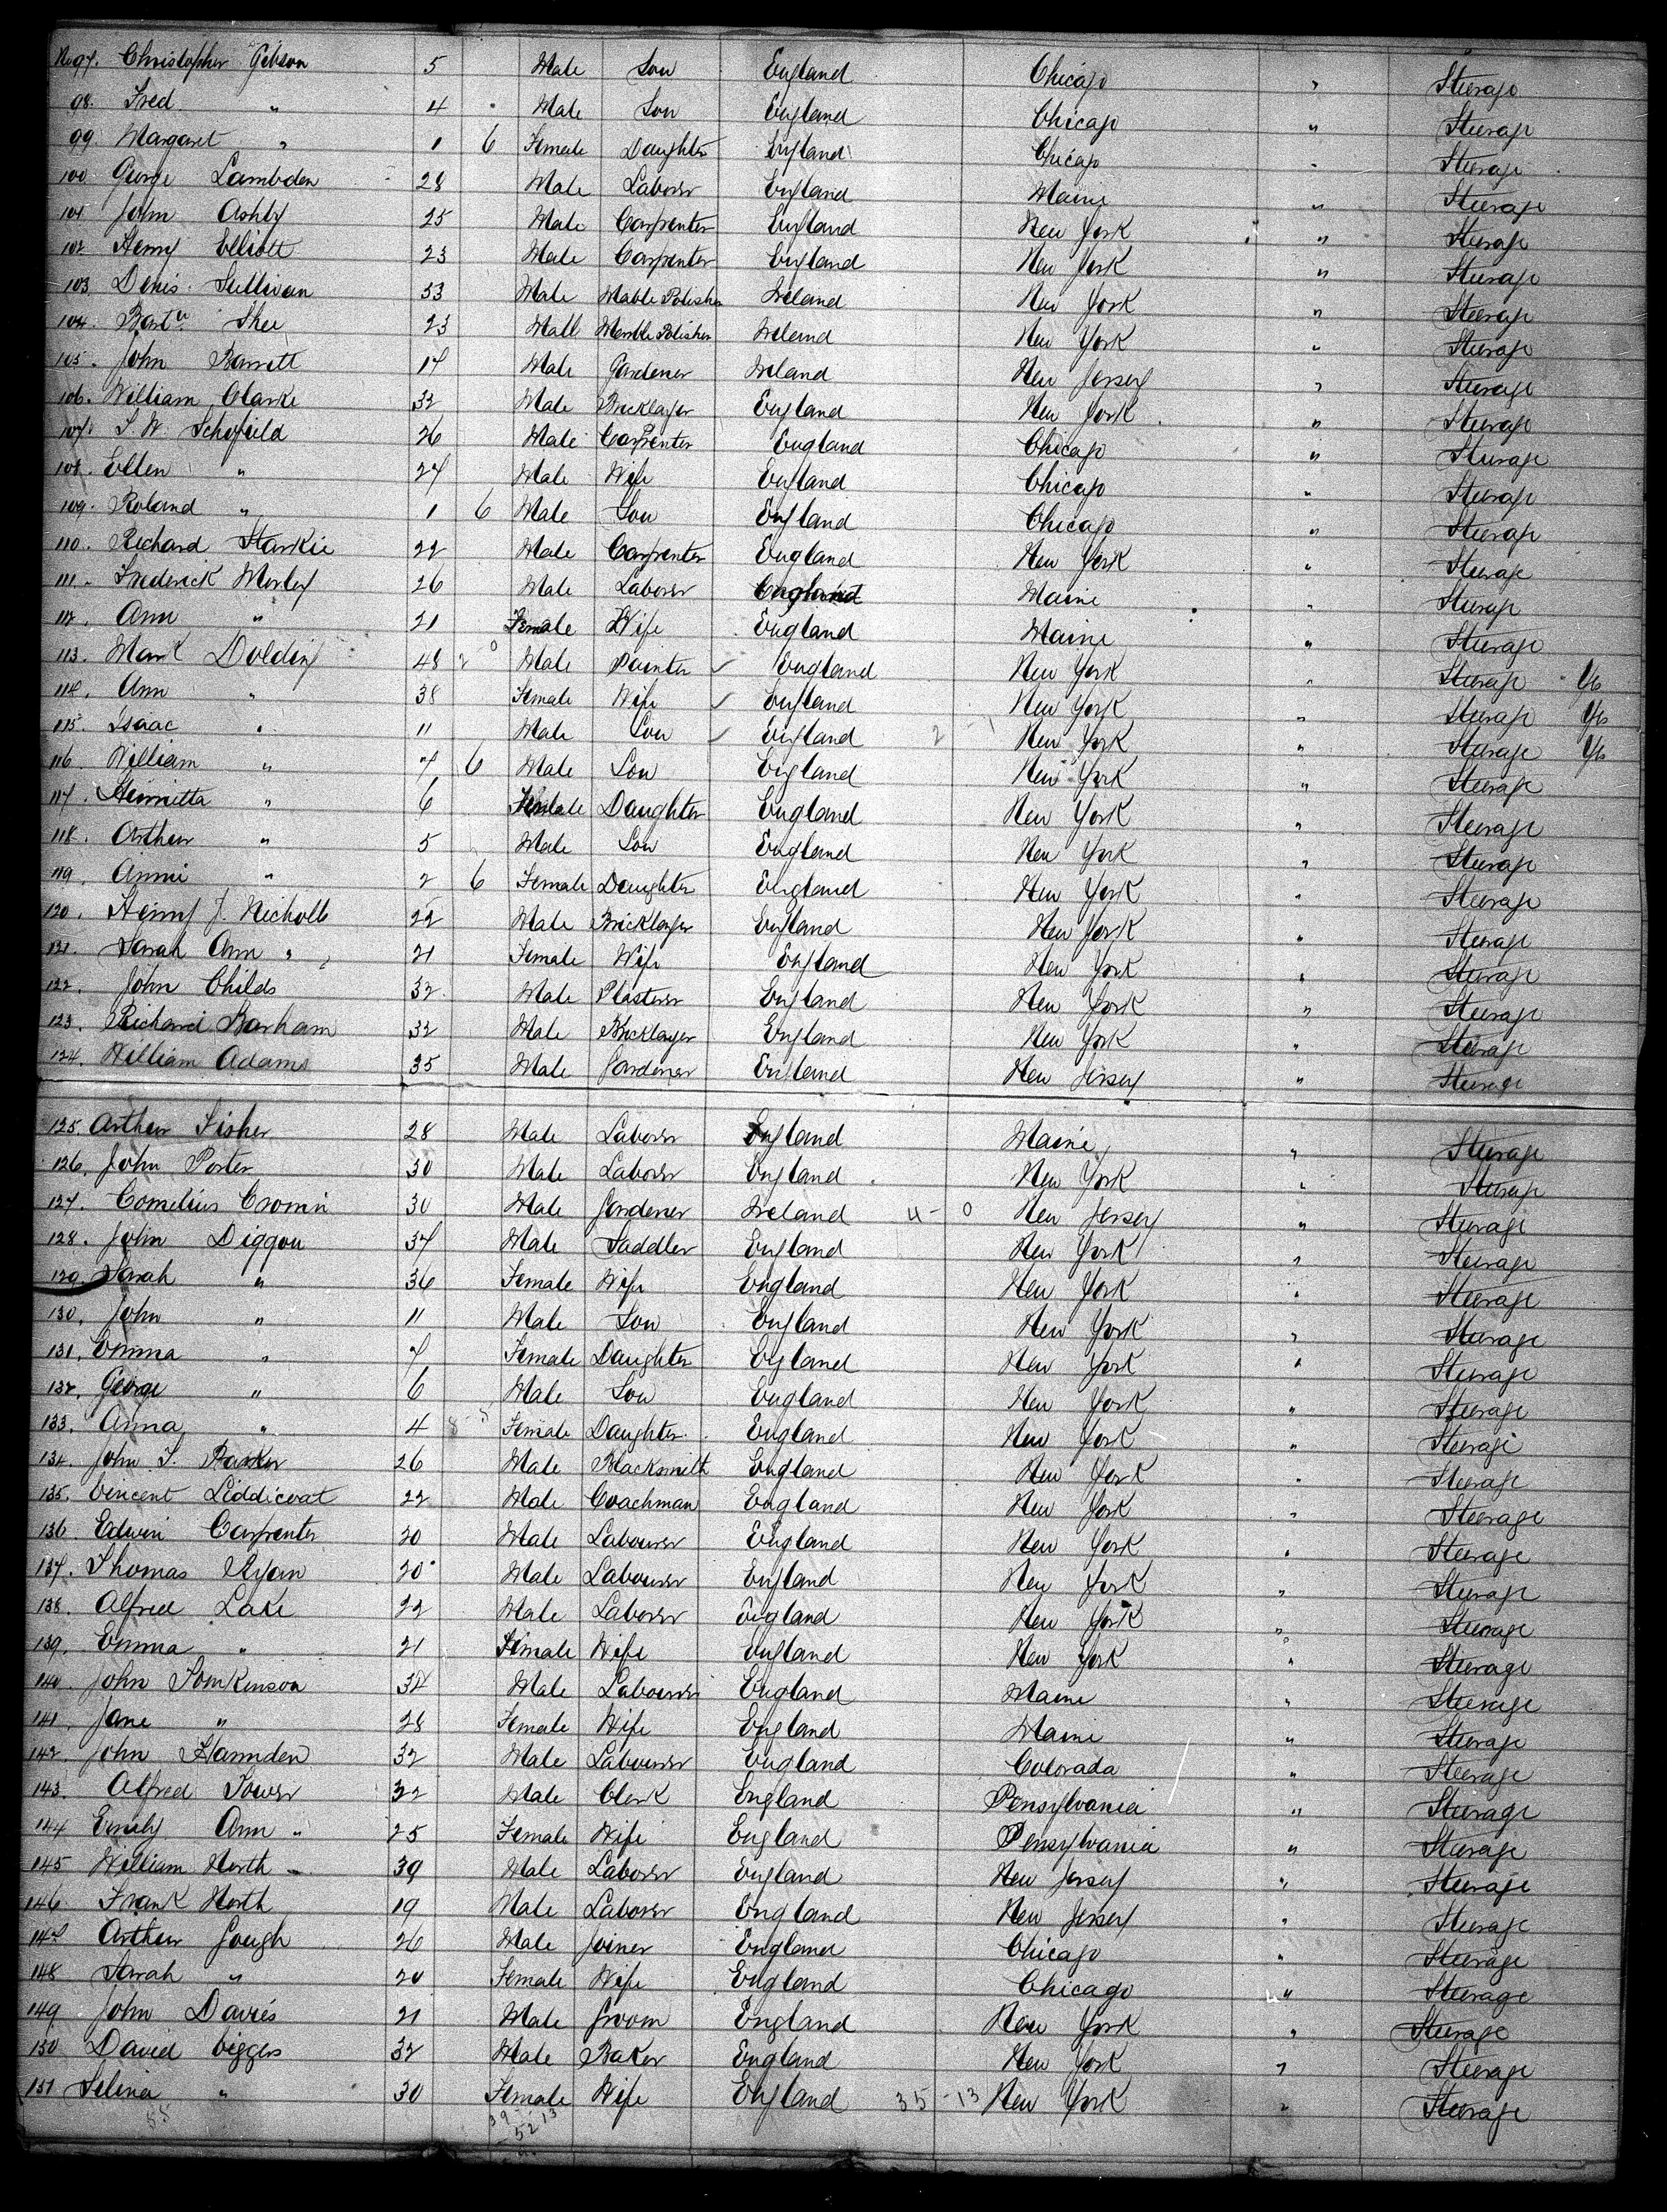 No 97. Christopher Gibson 5 Male Son England Chicago " Steerage
98. Fred " 4 Male Son England Chicago " Steerage
99. Margaret " 1 6 Female Daughter England Chicago " Steerage
100. George Lambden 28 Male Laborer England Maine " Steerage
101. John Ashby 25 Male Carpenter England New York " Steerage
102. Henry Elliott 23 Male Carpenter England New York " Steerage
103. Denis Sullivan 33 Male Mable Polisher Ireland New York " Steerage
104. Bartw Shee 23 Mall Marble Polisher Ireland New York " Steerage
105. John Barrett 17 Male Gardener Ireland New Jersey " Steerage
106. William Clarke 32 Male Bricklayer England New York " Steerage
107. S. W. Schofield 26 Male Carpenter England Chicago " Steerage
108. Ellen " 27 Male Wife England Chicago " Steerage
109. Roland " 1 6 Male Son England Chicago " Steerage
110. Richard Starkie 22 Male Carpenter England New York " Steerage
111. Frederick Morley 26 Male Laborer England Maine " Steerage
112. Ann " 21 Female Wife England Maine " Steerage
113. Mark Dolding 48 Male Painter England New York " Steerage Yes
114. Ann " 38 Female Wife England New York " Steerage Yes
115. Isaac " 11 Male Son England 2 - 1 New York " Steerage Yes
116. William " 7 6 Male Son England New York " Steerage
117. Henrietta " 6 Female Daughter England New York " Steerage
118. Arthur " 5 Male Son England New York " Steerage
119. Annie " 2 6 Female Daughter England New York " Steerage
120. Henry J. Nicholls 22 Male Bricklayer England New York " Steerage
121. Sarah Ann " 21 Female Wife England New York " Steerage
122. John Childs 32 Male Plasterer England New York " Steerage
123. Richard Barham 32 Male Bricklayer England New York " Steerage
124. William Adams 35 Male Gardener England New Jersey " Steerage
125. Arthur Fisher 28 Male Laborer England Maine " Steerage
126. John Porter 30 Male Laborer England New York " Steerage
127. Cornelius Cronin 30 Male Gardener Ireland 4 - 0 New Jersey " Steerage
128. John Diggon 37 Male Saddler England New York " Steerage
129. Sarah " 36 Female Wife England New York " Steerage
130. John " 11 Male Son England New York " Steerage
131. Emma " 7 Female Daughter England New York " Steerage
132. George " 6 Male Son England New York " Steerage
133. Anna " 4 Female Daughter England New York " Steerage
134. John T. Barker 26 Male Blacksmith England New York " Steerage
135. Vincent Liddicoat 22 Male Coachman England New York " Steerage
136. Edwin Carpenter 20 Male Labourer England New York " Steerage
137. Thomas Ryan 20 Male Labourer England New York " Steerage
138. Alfred Lake 22 Male Laborer England New York " Steerage
139. Emma " 21 Female Wife England New York " Steerage
140. John Tomkinson 34 Male Labourer England Maine " Steerage
141. Jane " 28 Female Wife England Maine " Steerage
142. John Hamnden 32 Male Labourer England Colorada " Steerage
143. Alfred Tower 32 Male Clerk England Pensylvania " Steerage
144 Emily Ann " 25 Female Wife England Pensylvania " Steerage
145 William North 39 Male Laborer England New Jersey " Steerage
146 Frank North 19 Male Laborer England New Jersey " Steerage
147 Arthur Gough 26 Male Joiner England Chicago " Steerage
148 Sarah " 20 Female Wife England Chicago " Steerage
149 John Davies 21 Male Groom England New York " Steerage
150 David Viggers 32 Male Baker England New York " Steerage
151 Selina " 30 Female Wife England 35 - 13 New York " Steerage
55 39
52 13